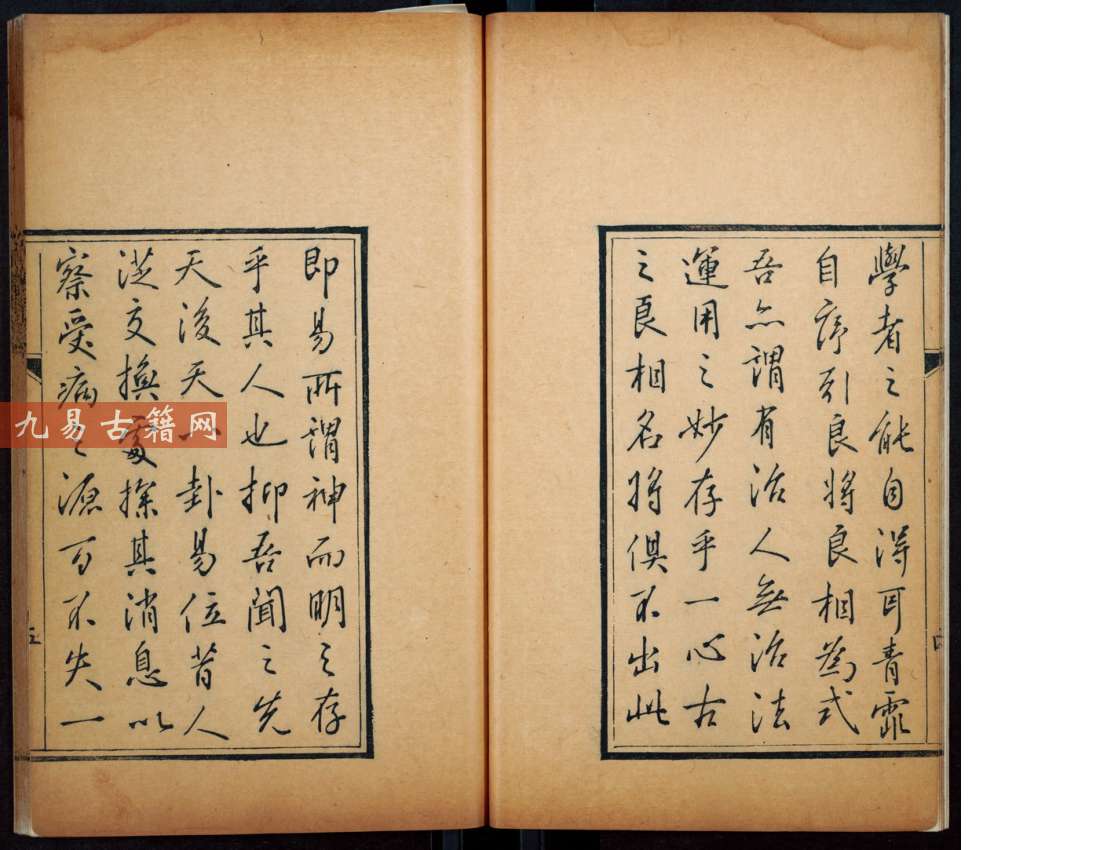 學者之能自得耳青霏
自序引良將良相為式
吾亦謂有治人無治法
運用之妙存乎一心古
之良相名將俱不出此
即易所謂神而明之存
乎其人也抑吾聞之先
天後天八卦易位昔人
從交換處探其消息以
察受病之源百不失一
九易古籍网